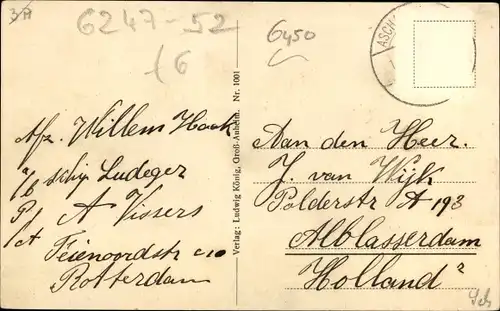 3/A
6247-52
(6
6450
ASCH
Afz. Willem Hoek
a/b schip Ludeger
P/A A Vissers
Feienoordstr c10
Rotterdam
Verlag: Ludwig König, Groß-Auheim. Nr. 1001
Aan den Heer.
J. van Wijk
Polderstr A 193
Alblasserdam
Holland